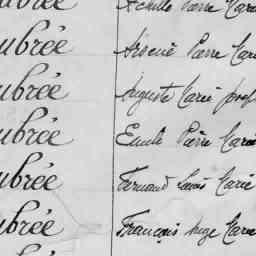 ubrée Achille Pierre Marie
ubrée Arsène Pierre Marie
ubrée Auguste Marie Josep
ubrée Emile Pierre Marie
ubrée Fernand Louis Marie
ubrée François Ange Marie